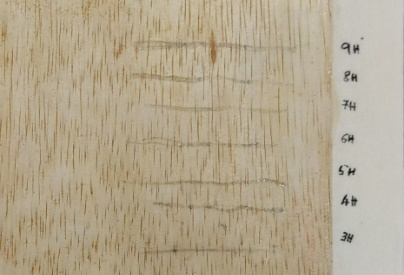 9H
8H
7H
6H
5H
4H
3H